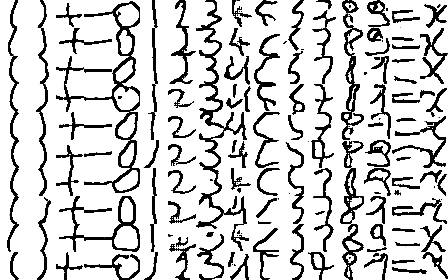 ( ) + - 0 1 2 3 4 5 7 8 9 = x
( ) + - 0 1 2 3 4 5 7 8 9 = x
( ) + - 0 1 2 3 4 5 7 8 9 = x
( ) + - 0 1 2 3 4 5 7 8 9 = x
( ) + - 0 1 2 3 4 5 7 8 9 = x
( ) + - 0 1 2 3 4 5 7 8 9 = x
( ) + - 0 1 2 3 4 5 7 8 9 = x
( ) + - 0 1 2 3 4 5 7 8 9 = x
( ) + - 0 1 2 3 4 5 7 8 9 = x
( ) + - 0 1 2 3 4 5 7 8 9 = x